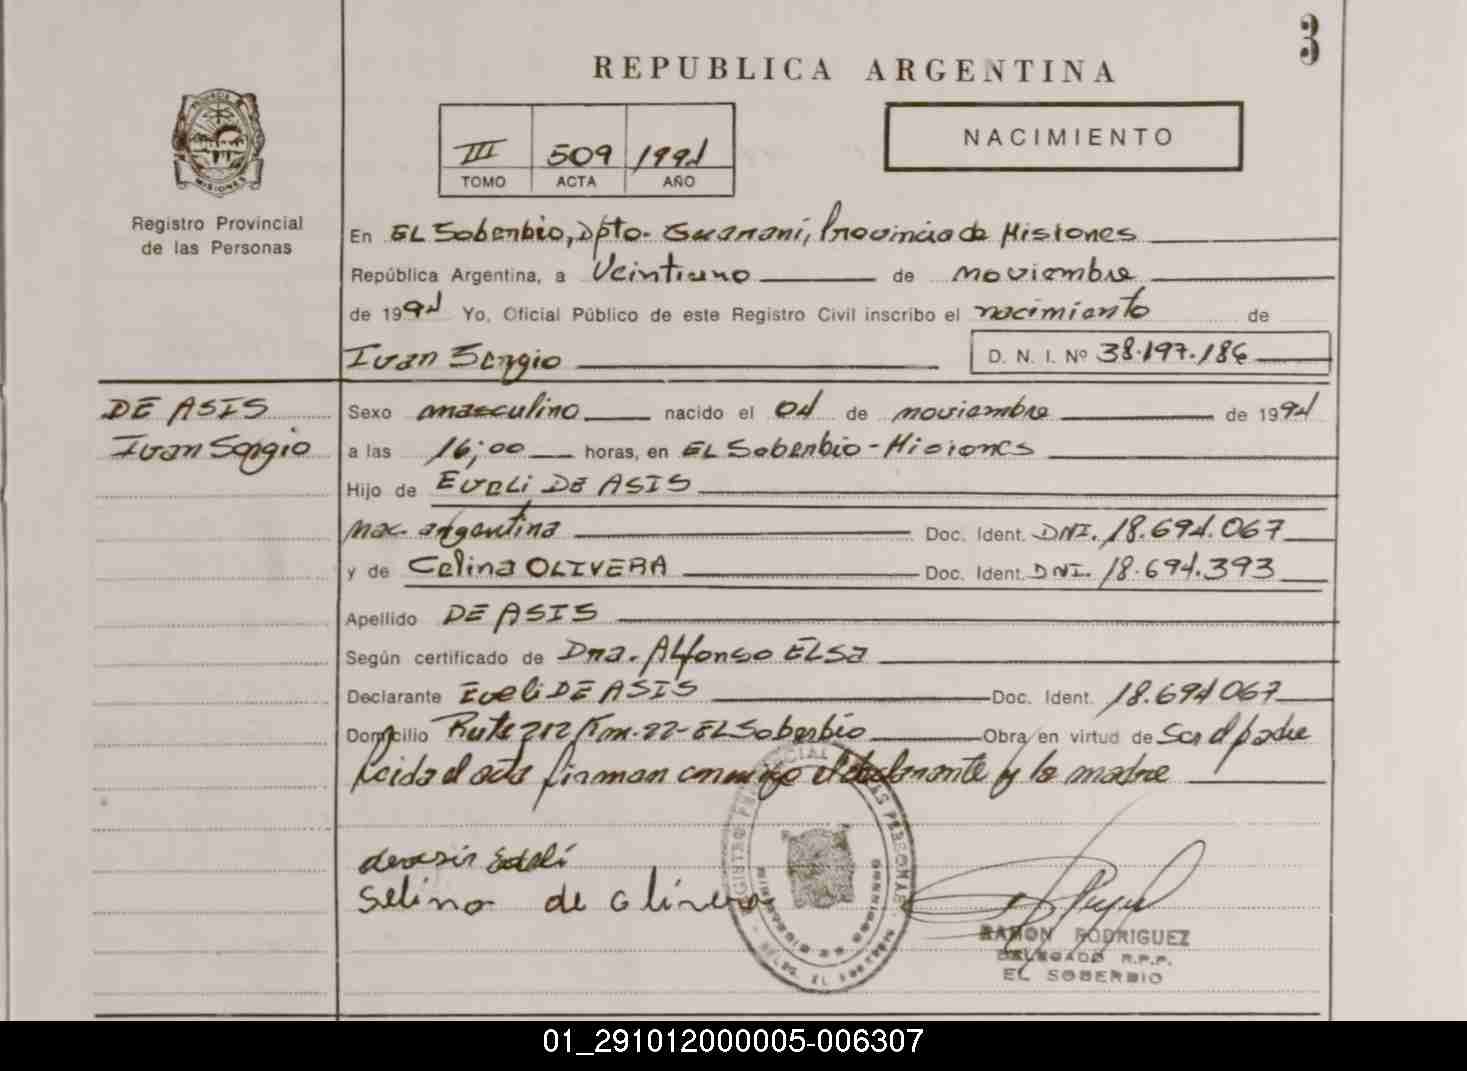 3
REPUBLICA ARGENTINA
NACIMIENTO
III 509 1994
TOMO ACTA AÑO
MISIONES
Registro Provincial
de las Personas
En EL Soberbio, Dpto. Guaraní, Provincia de Misiones
República Argentina, a Veintiuno de noviembre
de 1994 Yo, Oficial Público de este Registro Civil inscribo el nacimiento de
Ivan Sergio D. N. I. Nº 38.197.186
DE ASIS
Ivan Sergio
Sexo masculino nacido el 04 de noviembre de 1994
a las 16;00 horas, en EL Soberbio - Misiones
Hijo de Eveli DE ASIS
nac. argentina Doc. Ident. DNI. 18.694.067
y de Celina OLIVERA Doc. Ident. DNI. 18.694.393
Apellido DE ASIS
Según certificado de Dra. Alfonso ELSA
Declarante Eveli DE ASIS Doc. Ident. 18.694067
Domicilio Ruta 212 Km. 22 - EL Soberbio Obra en virtud de Ser el padre
Leida el acta firman conmigo el declarante y la madre
Selina de olivera
RAMON RODRIGUEZ
DELEGADO R.P.P.
EL SOBERBIO
01_291012000005-006307